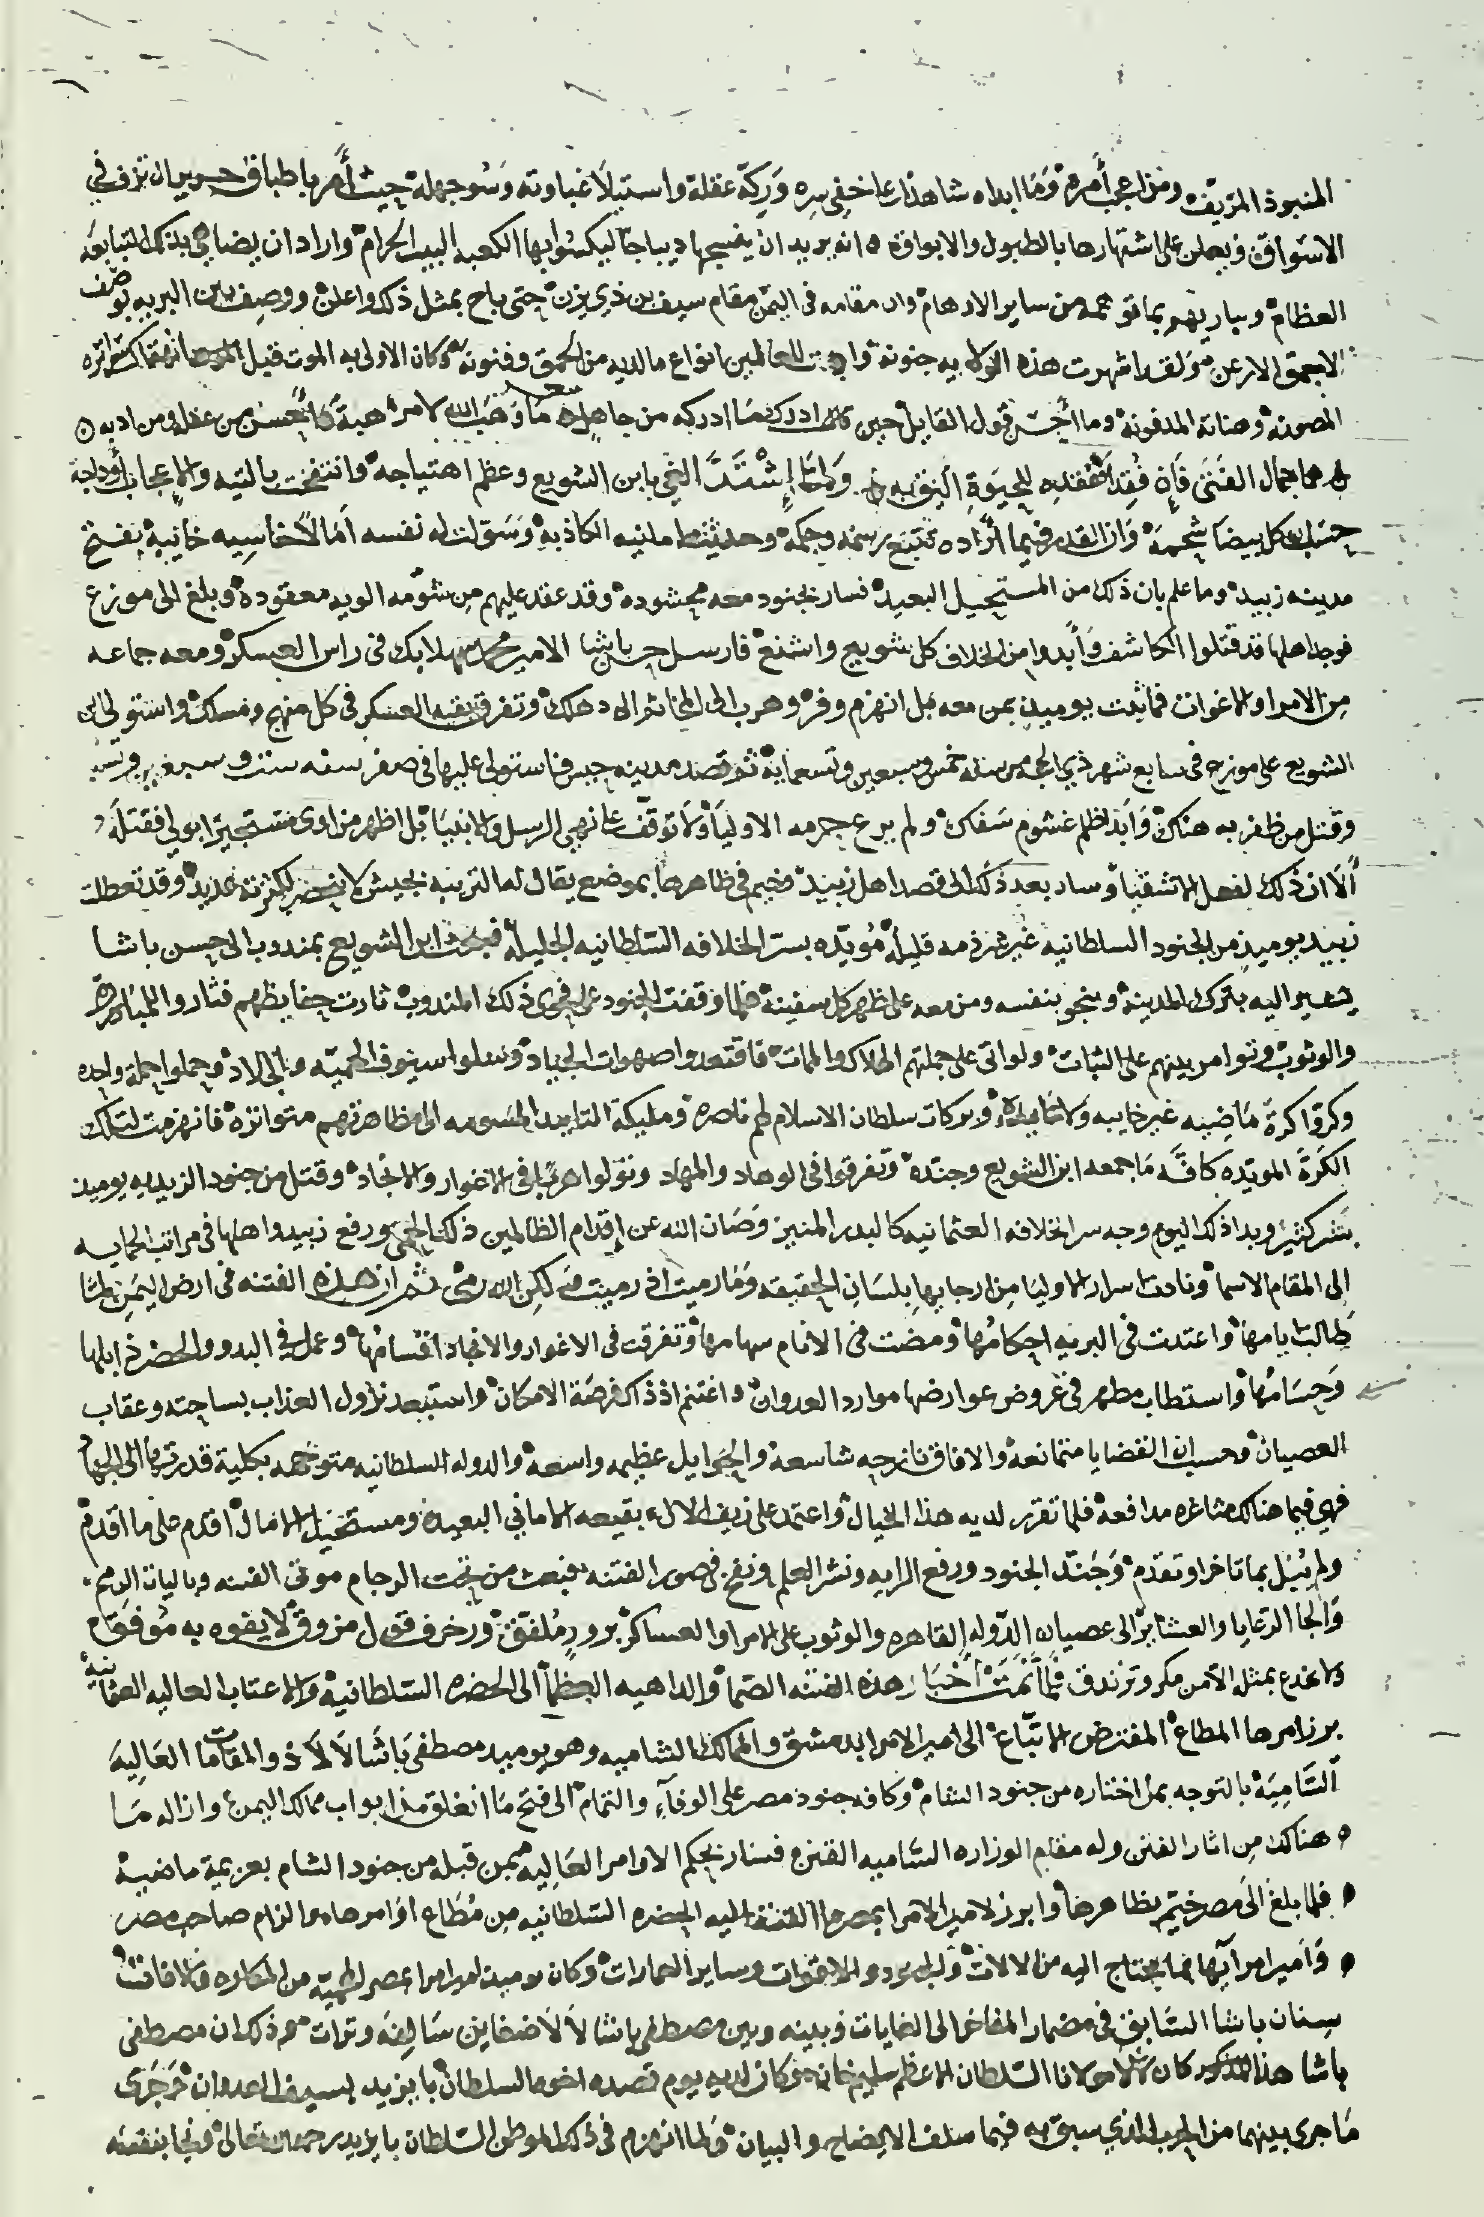 المنبوذ المزيف ومن اعجب أمره وما ابداه شاهدا على خفى سره وركة عقله واستيلا غباوته وسو جهله حيث أمر باطباق حرير ان تزف في
الاسواق ويعلن على اشتهارها بالطبول والابواق ه انه يريد ان ينسجها ديباجا ليكسوا بها الكعبه البيت الحرام واراد ان يضاهي بذلك التبابعه
العظام ويباريهم بما توهمه من ساير الاوهام وان مقامه فى اليمن مقام سيف بن ذي يزن حتى باح بمثل ذلك واعلن ووصف بين البريه بوصف
الاحمق الارعن ولقد اشهرت هذه جنونه للعالمين انواع ما لديه من الحمق وفنونه وكان الاولى به الموت قبل
المصونه وهناته المدفونه وما احسن قول القايل حين ادرك ما ادركه من جاهل ما وهب الله لامرء هبة احسن من عقله ومن ادبه ه
هما جمال الفتى فان فقدا ففقده للحيوة اليق به ولما إشتد الغي بابن الشويع وعظم اهتياجه وانتفخت بالتيه والاعجاب أوداجه
حسب ان كل بيضا شحمه وان القدر فيما أراده تتبع رسمه وحكمه وحدثته امانيه الكاذبه وسولت له نفسه آمالا خاسيه خايبه بفتح
مدينه زبيد وما علم بان ذلك من المستحيل البعيد فسار بجنود معه محشوده وقد عقد عليهم من شومه الويه معقوده وبلغ الى موزع
فوجد اهلها قد قتلوا الكاشف وأبدوا من الخلاف كل شويع واشنع فارسل حسن باشا الامير محمد بيك فى راس العسكر ومعه جماعه
من الامرا والاغوات فما ثبت يوميذ بمن معه بل انهزم وفر وهرب الى المخا ثم الى دهلك وتفرق بقية العسكر فى كل منهج ومسلك واستولى ابن
الشويع على موزع فى سابع شهر ذي الحجه من سنه خمس وسبعين وتسعماية ثم قصد مدينه حيس فاستولى عليها فى صفر سنه ست وسبعين وتسع
وقتل من ظفر به هناك وأبدا ظلم غشوم سفاك ولم يرع حرمه الاوليا ولا توقف عما نهى الرسل والانبيا بل اظهر من اوى مستجيرا بولى فقتله
ألا ان ذلك لفعل الاشقيا وسار بعد ذلك الى قصد اهل زبيد وخيم فى ظاهرها بموضع يقال له التربيه بجيش لا يحصر لكثرته عديد وقد تعطلت
زبيد يوميذ من الجنود السلطانيه غير شرذمه قليله مويده بسر الخلافه السلطانيه الجليله فبعث ابن الشويع بمندوب الى حسن باشا
يشير اليه بترك المدينه وينجو بنفسه ومن معه على ظهر كل سفينه فلما وقفت الجنود على فحوى ذلك المندوب ثارت حفايظهم فثاروا للمبادره
والوثوب وتوامر بينهم على الثبات ولو اتى على جملتهم الهلاك والممات فاقتعدوا صهوات الجياد وسلوا سيوف الحميه والجلاد وحملوا حملة واحده
وكروا كرة ماضيه غير خايبه وبركات سلطان الاسلام لهم ناصره ومليكة التاييد المسومه الى مظاهرتهم متواتره فانهزمت لتلك
الكرة المويده كافه ما جمعه ابن الشويع وجنده وتفرقوا فى الوهاد والمهاد وتولوا هربا فى الاغوار والانجاد وقتل من جنود الزيديه يوميذ
بشر كثير وبدا ذلك اليوم وجه سر الخلافه العثمانيه كالبدر المنير وصان الله عن إقدام الظالمين ذلك الحمى ورفع زبيد واهلها فى مراتب الحمايه
الى المقام الاسما ونادت اسرار الاوليا من ارجايها بلسان الحقيقه وما رميت اذ رميت ولكن الله رمى ثم ان هذه الفتنه فى ارض اليمن لما
طالت ايامها واعتدت فى البريه احكامها ومضت فى الانام سهامها وتفرقت فى الاغوار والانجاد اقسامها وعمل فى البدو والحضر ذابلها
وحسامها واستطاب مطهر فى غروض عوارضها موارد العدوان واغتنم اذ ذاك فرصة الامكان واستبعد نزول العذاب بساحته وعقاب
العصيان وحسب ان القضايا متمانعه والافاق نازحه شاسعه والحوايل عظيمه واسعه والدوله السلطانيه متوجهه بكلية قدرتها الى الجهاد
فهي فيما هنالك مثاغره مدافعه فلما تقرر لديه هذا الخيال واعتمد على زيف الال بقيعه الاماني البعيده ومستحيل الامال اقدم على ما اقدم
ولم يبل بما تاخر او تقدم وجند الجنود ورفع الرايه ونشر العلم ونفخ فى صور الفتنه فبعث من تحت الرجام موتى الفتنه وباليات الرمم
والجا الرعايا والعشاير الى عصيان الدوله القاهره والوثوب على الامرا والعساكر بزور ملفق وزخرف قول مزوق لا يفوه به موفق
ولا يخدع بمثله الا من مكر وتزندق فلما نمت أخبار هذه الفتنه الصما والداهيه العظما الى الحضره السلطانيه والاعتاب العاليه العثمانيه
برز امرها المطاع المفترض الاتباع الى امير الامرا بدمشق والممالك الشاميه وهو يوميذ مصطفى باشا لالا ذو المقامات العاليه
الساميه بالتوجه بمن اختاره من جنود الشام وكافه جنود مصر على الوفآء والتمام الى فتح ما انغلق من ابواب ممالك اليمن وازاله ما
هنالك من اثار الفتن وله مقام الوزاره الساميه القنن فسار بحكم الاوامر العاليه بمن قبله من جنود الشام بعزيمة ماضيه
فلما بلغ الى مصر خيم بظاهرها وابرز لامير الامرا بمصر ما انفذ اليه الحضره السلطانيه من مطاع اوامرها والزام صاحب مصر
وامير امرآيها بما يحتاج اليه من الالات والبارود والاقوات وساير العمارات وكان يوميذ امير امرا مصر المحميه من المكاره والافات
سنان باشا السابق فى مضمار المفاخر الى الغايات وبينه وبين مصطفى باشا لالا ضغاين سالفه وترات وذلك ان مصطفى
باشا هذا المذكور كان لالا مولانا السلطان الاعظم سليم خان وكان لديه يوم قصده اخوه السلطان بايزيد بسيف العدوان وجرى
ما جرى بينهما من الحرب الذي سبق به فيما سلف الايضاح والبيان ولما انهزم فى ذلك الموطن السلطان بايزيد رحمه الله تعالى ونجا بنفسه